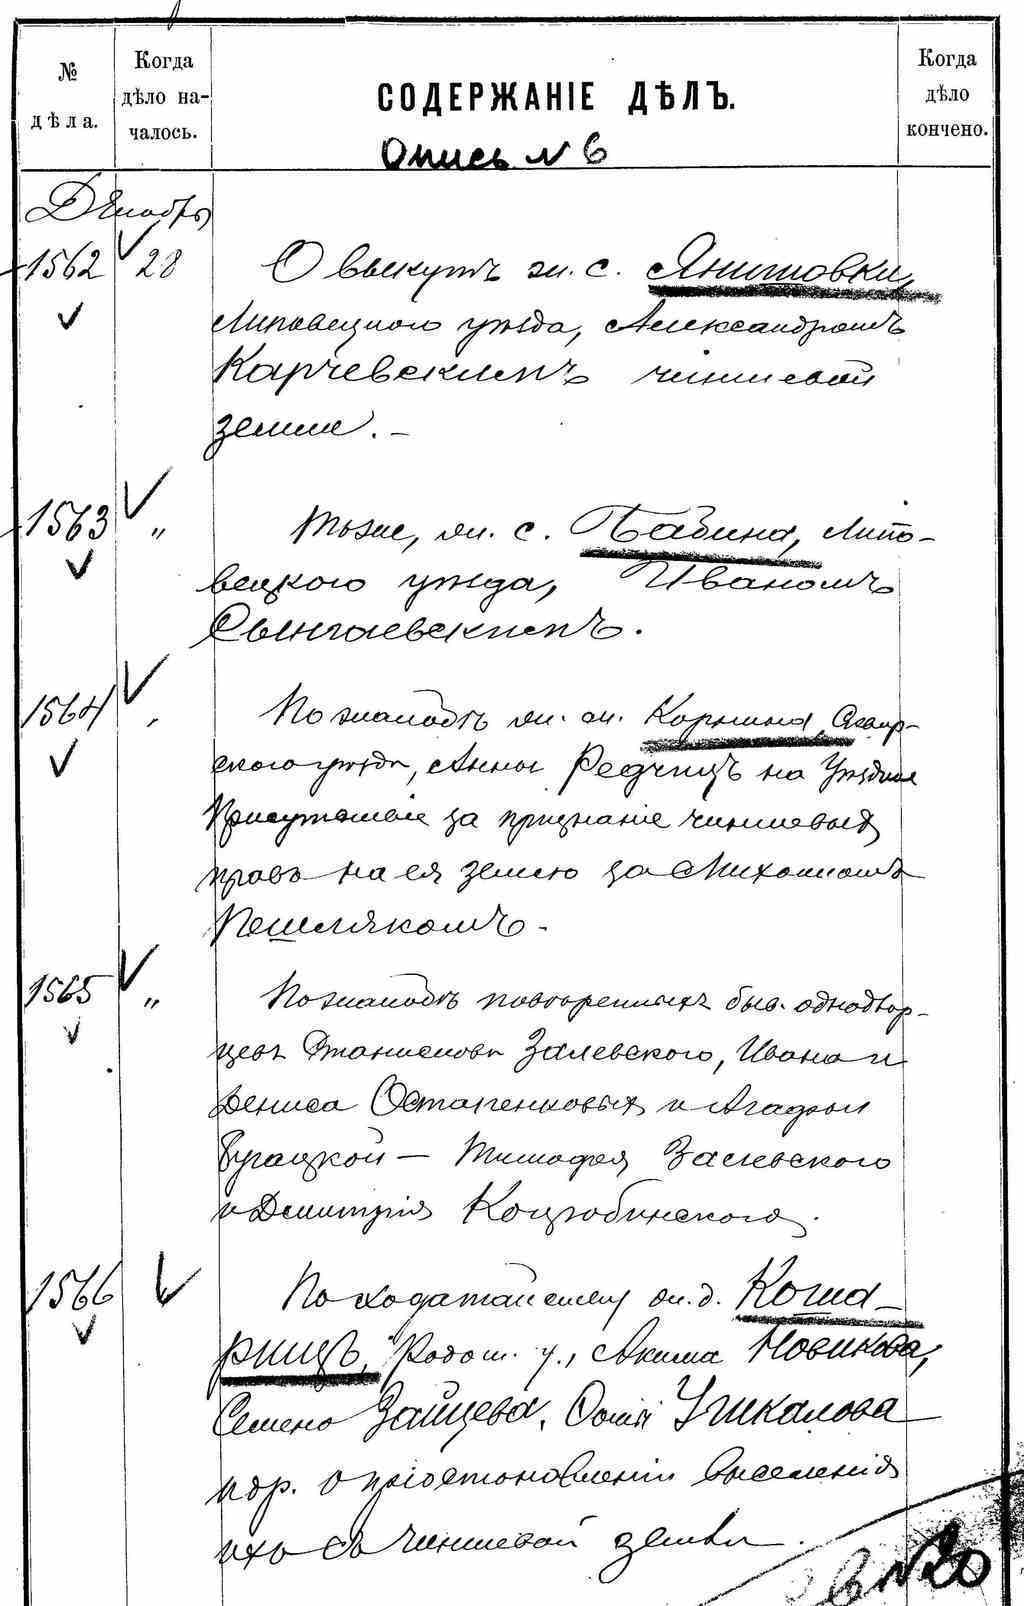 № дѣла.
Когда дѣло на-чалось.
СОДЕРЖАНІЕ ДѢЛЪ.
Когда дѣло кончено.
Опись № 6
Декабрь
1562 28 О выкупѣ им. с. Янишовки,
Липовецкого уѣзда, Александромъ
Карчевскимъ чиншевой
земли. –
1563 „ Тоже, им. с. Бабина, Липо-
вецкого уѣзда, Иваномъ
Сынгаевскимъ.
1564 „ По жалобѣ им. м. Корнина, Сквир-
ского уѣзда, Анны Редчицъ на Уѣздное
Присутствіе за признаніе чиншевыхъ
правъ на ея землю за Михаиломъ
Пешляком ъ -
1565 „ По жалобѣ повѣренныхъ быв. однодвор-
цевъ Станислава Залевского, Ивана и
Дениса Остапенковыхъ и Агафьи
– Тимофея Залевского
и Димитрія Коцюбинского.
1566 По ходатайству им. д. Коша-
рищъ, Радом. у., Акима Новикова,
Семена Зайцева, Ушкалова
и др. о пріостановленіи выселенія
ихъ съ чиншевой земли.
№20